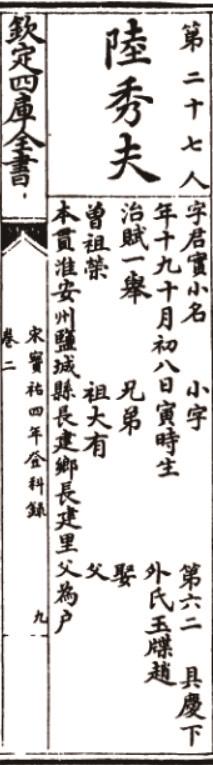 第二十七人
陸秀夫
字君實小名 小字 第六二 具慶下
年十九十月初八日寅時生 外氏玉牒趙
治賦一舉 兄弟 娶
曾祖榮 祖大有 父
本貫淮安州鹽城縣長建鄉長建里父為户
欽定四庫全書
宋寳祐四年登科錄
卷二
九